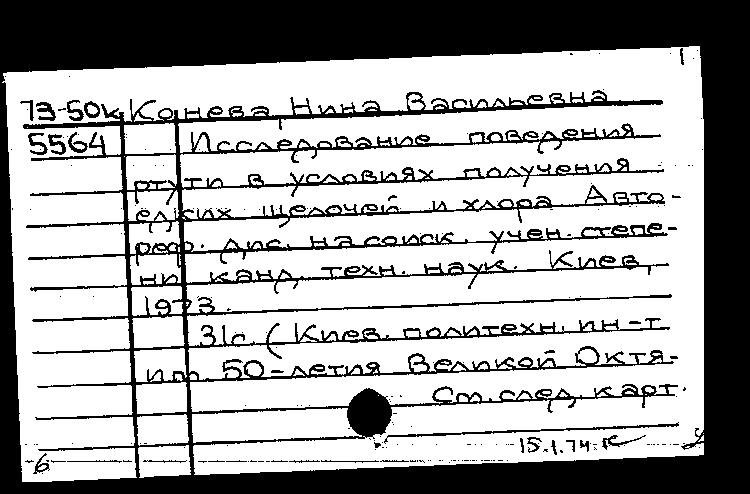 1
73-50к Конева, Нина Васильевна
5564 Исследование поведения
ртути в условиях получения
едких щелочей и хлора Авто-
реф. дис. на соиск. учен. степе-
ни канд. техн. наук. Киев,
1973.
31с. (Киев. политехн. ин-т
им. 50-летия Великой Октя-
См. след. карт.
15.1.74.
б